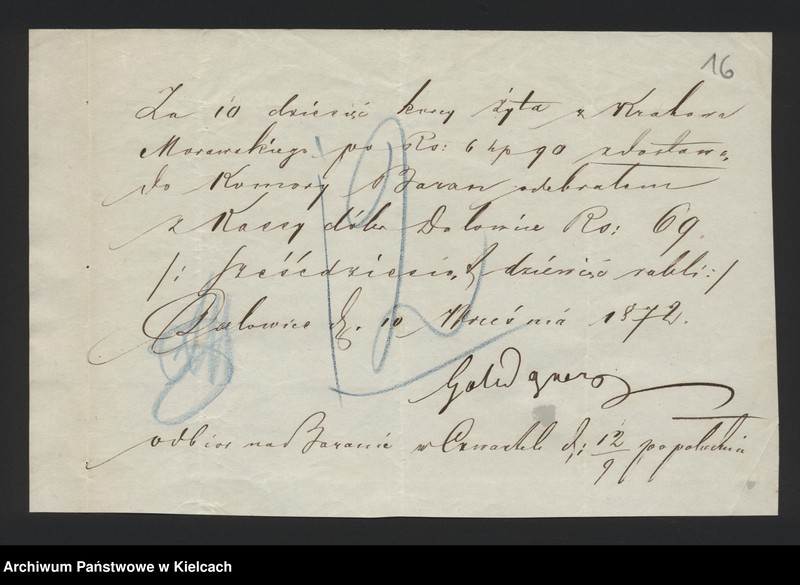 16
Za 10 dziesięć korcy żyta z Krakowa
Morawskiego po Rs: 6 kp 90 z dostawą
do Komory Baran odebrałem
z Kassy dóbr Dołowice Rs: 69.
/: sześćdziesiąt dziewięć rubli :/
d. 10 Września 1872.
odbior na Baranie w Czwartek d: 12/9 po południu
Archiwum Państwowe w Kielcach